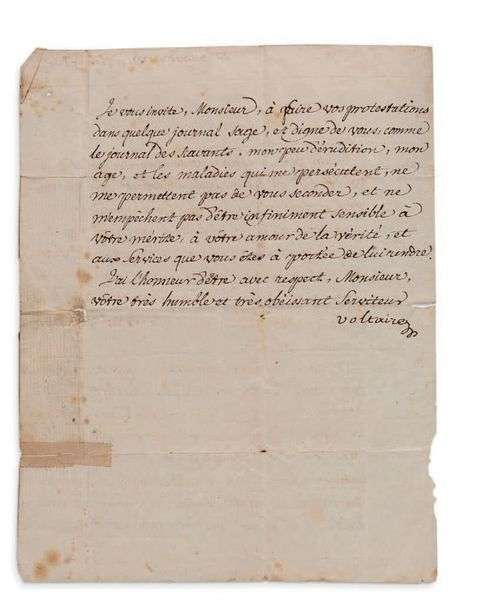 Je vous invite, Monsieur, à faire vos protestations
dans quelque journal sage, et digne de vous, comme
le journal des sçavants, mon peu d'érudition, mon
age, et les maladies qui me persécutent, ne
me permettent pas de vous seconder, et ne
m'empèchent pas d'être infiniment sensible à
vôtre mérite, à vôtre amour de la vérité, et
aux services que vous êtes à portée de lui rendre.
J'ai l'honneur d'être avec respect, Monsieur,
vôtre très humble et très obéissant serviteur
voltaire